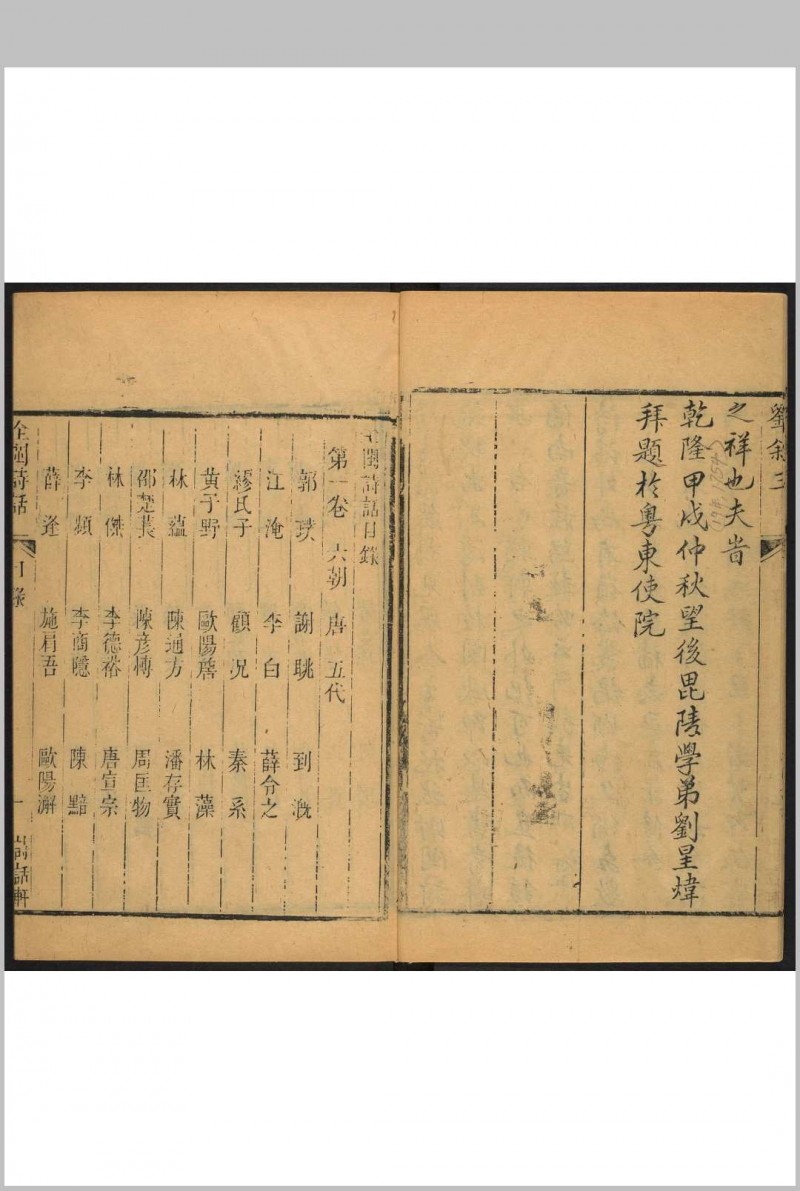 劉叙三
之祥也夫旹
乾隆甲戌仲秋望後毘陵學弟劉星煒
拜題於粵東使院
全閩詩話目錄
第一卷 六朝 唐 五代
郭璞 謝眺 到溉
江淹 李白 薛令之
繆氏子 顧況 秦系
黃子野 歐陽詹 林藻
林蘊 陳通方 潘存實
邵楚萇 陳彥博 周匡物
林傑 李德裕 唐宣宗
李頻 李商隱 陳黯
薛逢 施肩吾 歐陽澥
全閩詩話 目錄 一 詩話軒